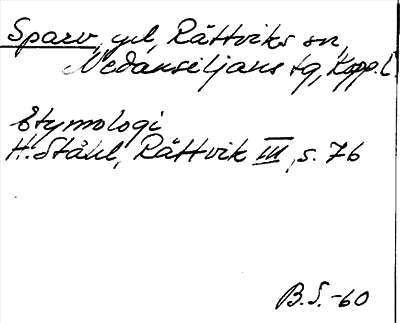 Sparv, gd, Rättviks sn,
Nedansiljans tg, Kopp.l.
Etymologi
H. Ståhl, Rättvik III, s. 76
B.S.-60